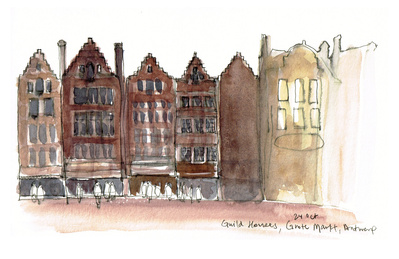 24 Oct
Guild Houses, Grote Markt, Antwerp